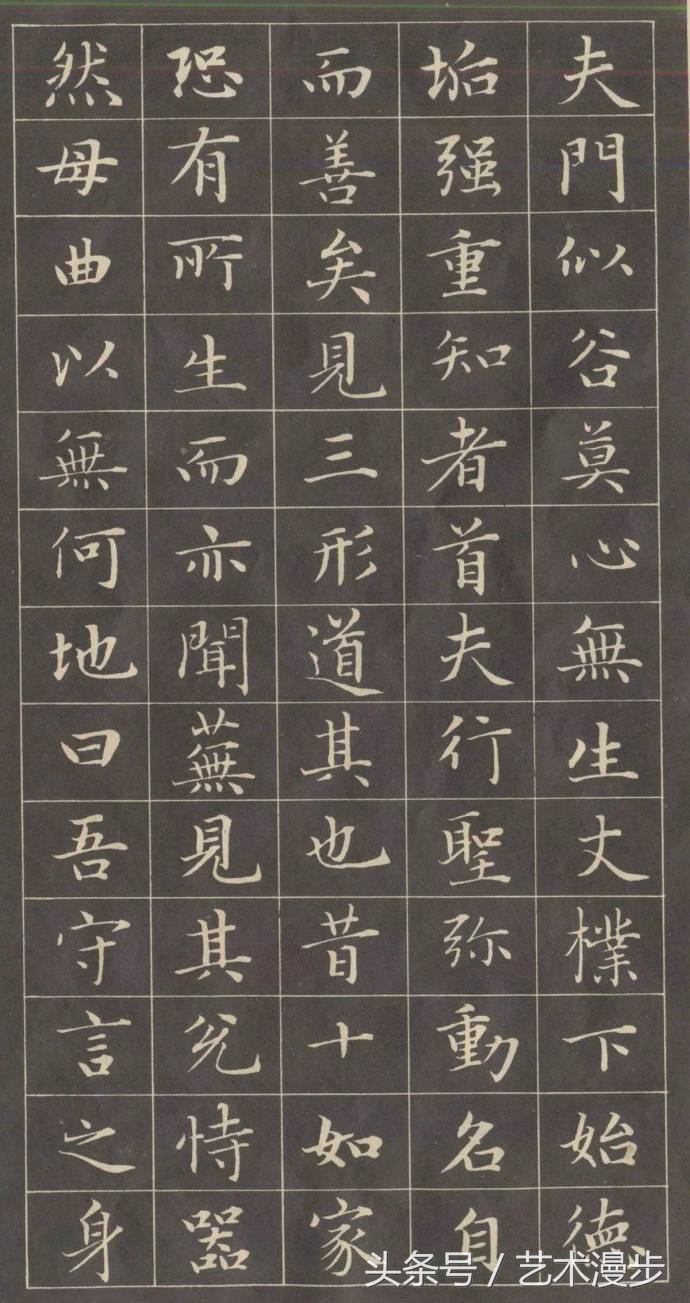 夫門似谷莫心無生丈樸下始德
垢强重知者首夫行聖弥動名自
而善矣見三形道其也昔十如家
恐有所生而亦聞蕪見其兊恃器
然母曲以無何地曰吾守言之身
头条号 / 艺术漫步